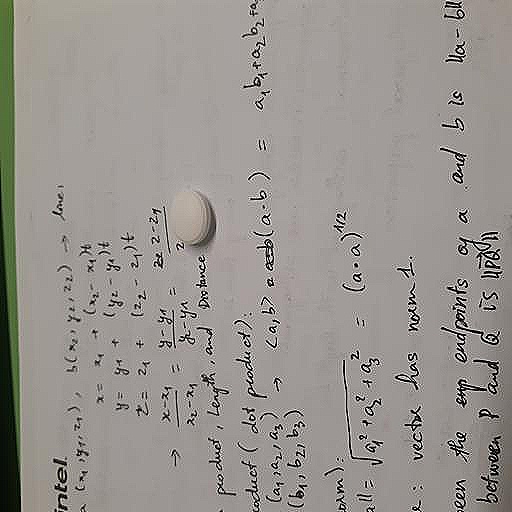 intel.
a (x1, y1, z1), b(x2, y2, z2) → line:
x = x1 + (x2 - x1)t
y = y1 + (y2 - y1)t
z = z1 + (z2 - z1)t
→ x-x1/x2-x1 = y-y1/y2-y1 = z-z1/z
product, Length, and Distance
oduct (dot product):
(a1, a2, a3) → <a,b> = (a·b) = a1b1 + a2b2 + a
(b1, b2, b3)
orm):
all = √a1² + a2² + a3² = (a·a)^1/2
: vector has norm 1.
een the endpoints of a and b is ||a-b||
between P and Q is ||PQ||